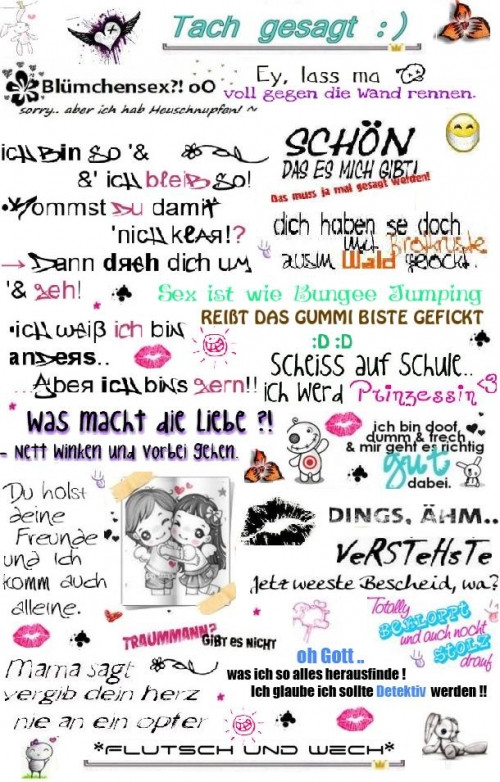 Tach gesagt :)
Blümchensex?! oO
sorry.. aber ich hab Heuschnupfen! ~
Ey, lass ma
voll gegen die Wand rennen.
SCHÖN
DAS ES MICH GIBT!
Das muss ja mal gesagt werden!
ich bin so '&
&' ich bleib so!
Kommst du damit
'nich klar!?
→ Dann dreh dich um
'& geh!
dich haben se doch
mit Brotkruste
aus'm Wald gelockt.
Sex ist wie Bungee Jumping
REIßT DAS GUMMI BISTE GEFICKT
:D :D
•ich weiß ich bin
anders..
...Aber ich bins gern!!
Scheiss auf Schule..
ich werd Prinzessin <3
Was macht die Liebe ?!
- Nett winken und vorbei gehen.
ich bin doof,
dumm & frech
& mir geht es richtig
gut
dabei.
Du holst
deine
Freunde
und Ich
komm auch
alleine.
DINGS, ÄHM..
VeRSTeHsTe
Jetz weeste Bescheid, wa?
Totally
BEKLOPPT
und auch noch
STOLZ
drauf
TRAUMMANN? GIBT ES NICHT
oh Gott ..
was ich so alles herausfinde !
Ich glaube ich sollte Detektiv werden !!
Mama sagt
vergib dein herz
nie an ein opfer
*FLUTSCH UND WECH*